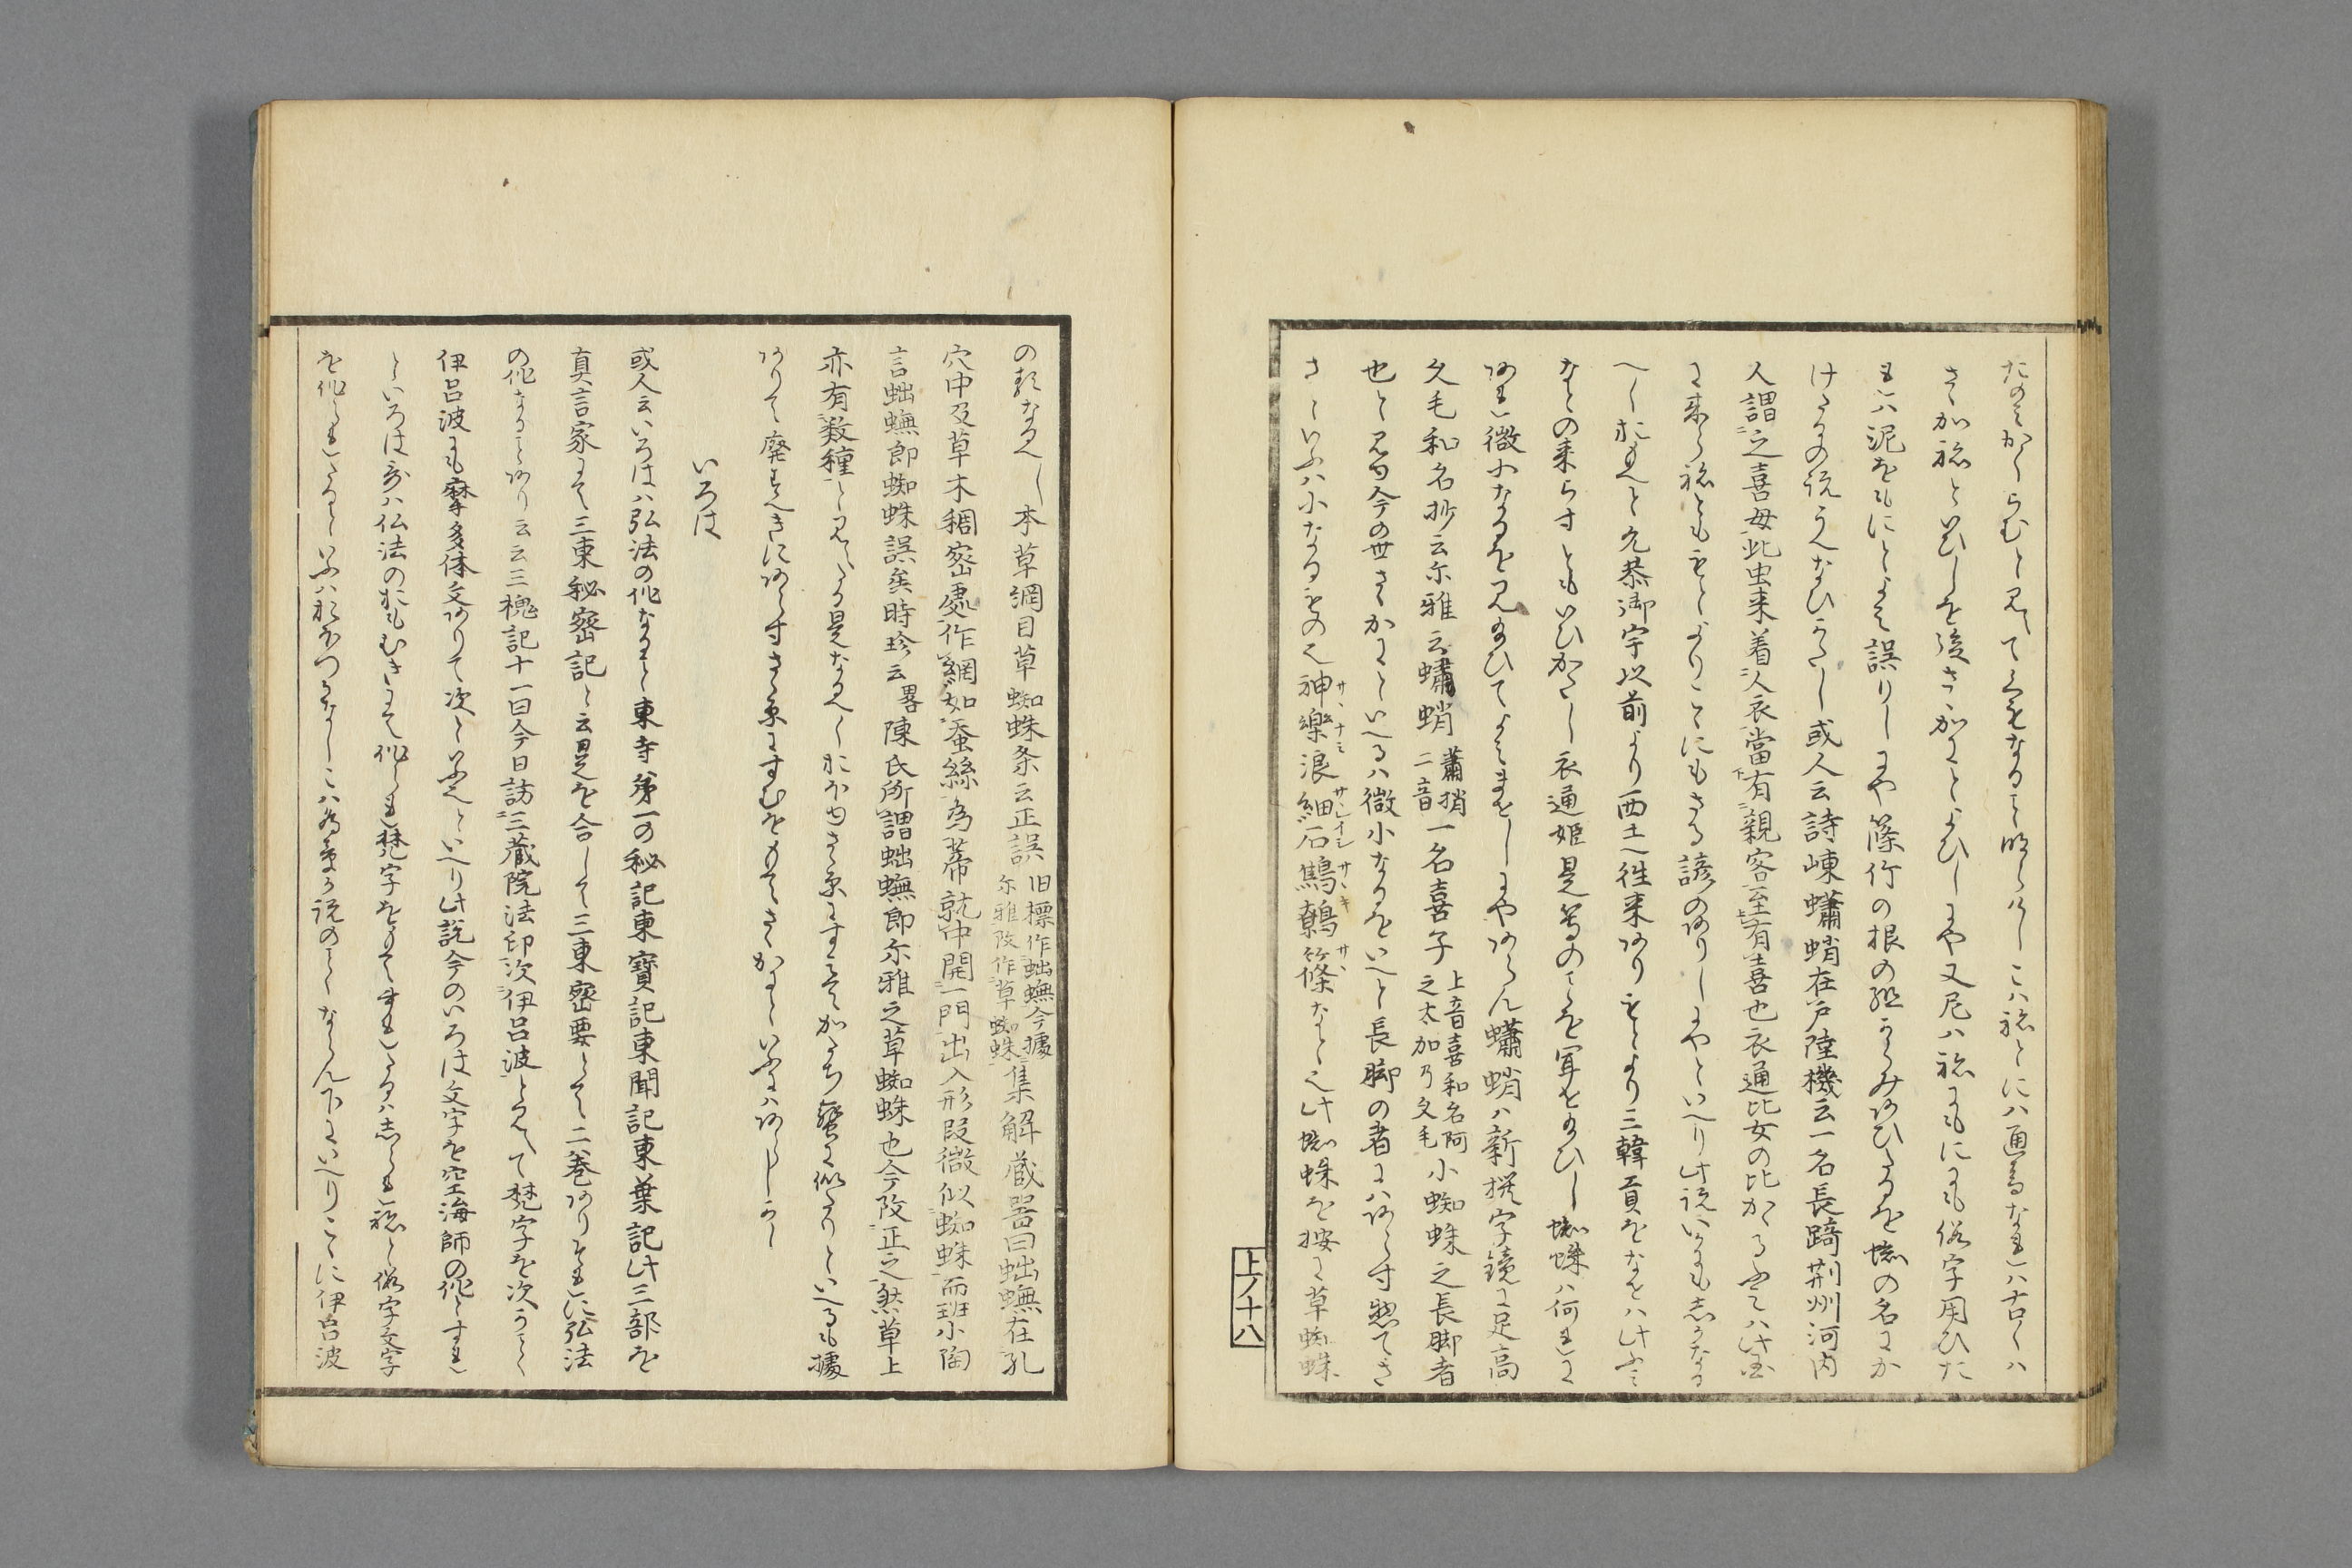 たのみかくらむと見てくもなること明らけしこハ祢とにハ通音なれハ古くハ
さゝか祢といひしを後さゝかにといひしにや又尼ハ祢にもにゝも仮字用ひた
れハ泥をねにとよみ誤りしにや篠竹の根の組からみあひたるを蜘の名にか
けたるの説うへなひかたし或人云詩崠蠨蛸在戸陸機云一名長踦荊州河内
人謂之喜母此虫来着人衣當有親客至有喜也衣通比女の比かる
に来らねとももとよりこゝにもさる諺のありしにやといへり此説いかにも志かなる
へしおもへと允恭御宇以前より西土へ徃来ありもとより三韓貢をなせハ此ふみ
なとの来らすともいひかたし衣通姫是等のことを聞せ給ひし蜘蛛ハ何れに
あれ微小なるを見給ひてよみませしにやあらん蠨蛸ハ新撰字鏡に足高
久毛和名抄云尓雅云蠨蛸
蕭捎
二音
一名喜子
上音喜和名阿
之太加乃久毛
小蜘蛛之長脚者
也と見ゆ今の世さゝかにといへるハ微小なるをいへと長脚の者にハあらす惣てさ
さといふハ小なるもの之神樂浪細石鷦鷯篠なと之此蜘蛛を按に草蜘蛛
サヽナミ
サヽレイシ
サヽキ
サヽ
上ノ十八
の類なるへし本草綱目草蜘蛛条云正誤
旧標作蚰蟱今據
尓雅改作草蜘蛛
集解蔵器曰蚰蟱在孔
穴中及草木稠密處作網如蚕絲為幕就中開一門出入形段微似蜘蛛而班小陶
言蚰蟱即蜘蛛誤矣時珍云
畧
陳氏所謂蚰蟱即尓雅之草蜘蛛也今改正之然草上
亦有数種と見へたる是なるへしおほゆさゝ原にすみてかたち蟹に似たりといへるも據
ありて廃すへきにあらすさゝ原にすむをもてさゝかにといふにハあらしかし
いろは
或人云いろはハ弘法の作なること東寺第一の秘記東寶記東聞記東葉記此三部を
真言家にて三東秘密記と云是を合して三東密要とて二巻ありそれに弘法
の作なることあり云云三槐記十一日今日訪三蔵院法印次伊呂波とみへて梵字を次かことく
伊呂波にも摩多体文ありて次といふといへり此説今のいろは文字を空海師の作とすれ
といろは哥ハ仏法のおもむきにて作られ梵字をもてませしたるハ志られねと仮字文字
を作られしことゝいふハおほつかなしこハ為章か説のことくならん下にいへりこゝに伊呂波